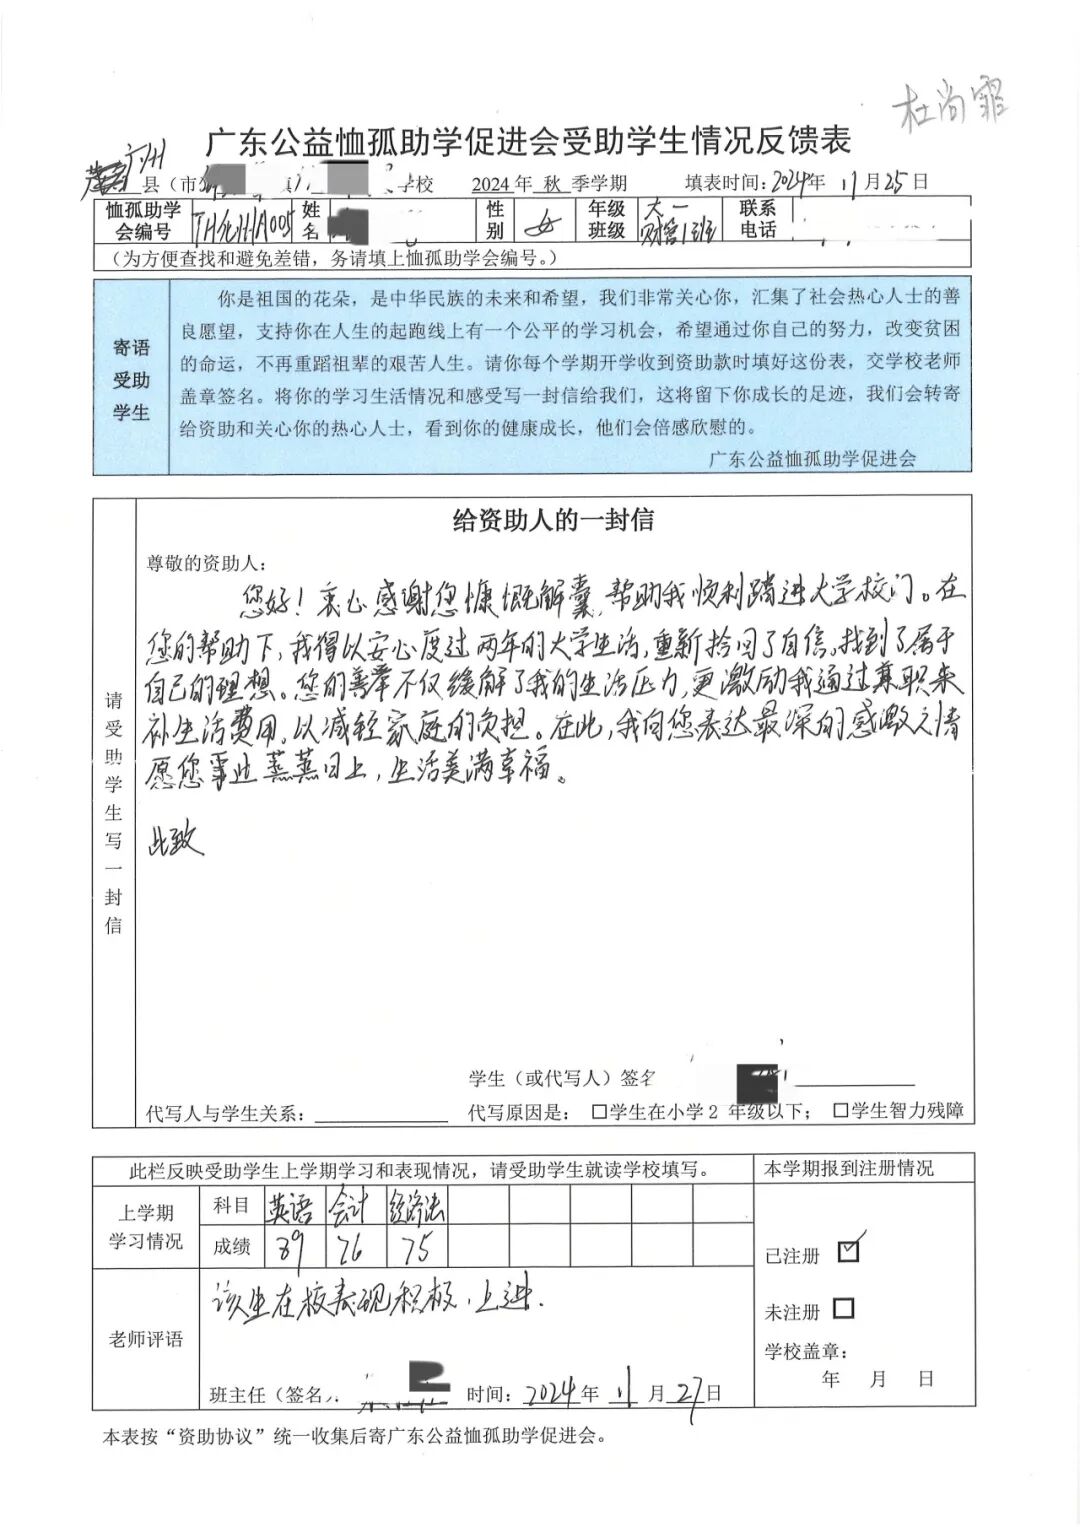 杜尚霏
广东公益恤孤助学促进会受助学生情况反馈表
广州
县(市 镇 学校 2024年 秋 季学期 填表时间:2024年 11月25日
恤孤助学会编号 姓名 性别 女 年级班级 大一 财管1班 联系电话
(为方便查找和避免差错,务请填上恤孤助学会编号。)
寄语受助学生
你是祖国的花朵,是中华民族的未来和希望,我们非常关心你,汇集了社会热心人士的善
良愿望,支持你在人生的起跑线上有一个公平的学习机会,希望通过你自己的努力,改变贫困
的命运,不再重蹈祖辈的艰苦人生。请你每个学期开学收到资助款时填好这份表,交学校老师
盖章签名。将你的学习生活情况和感受写一封信给我们,这将留下你成长的足迹,我们会转寄
给资助和关心你的热心人士,看到你的健康成长,他们会倍感欣慰的。
广东公益恤孤助学促进会
请受助学生写一封信
给资助人的一封信
尊敬的资助人:
您好!衷心感谢您慷慨解囊,帮助我顺利踏进大学校门。在
您的帮助下,我得以安心度过两年的大学生活,重新拾回了自信,找到了属于
自己的理想。您的善举不仅缓解了我的生活压力,更激励我通过兼职来
补生活费用,以减轻家庭的负担。在此,我向您表达最深的感激之情
愿您事业蒸蒸日上,生活美满幸福。
此致
学生(或代写人)签名
代写人与学生关系: 代写原因是: □学生在小学2 年级以下; □学生智力残障
此栏反映受助学生上学期学习和表现情况,请受助学生就读学校填写。 本学期报到注册情况
上学期学习情况 科目 英语 会计 经济法
成绩 89 76 75
已注册 ☑
未注册 □
学校盖章:
年 月 日
老师评语 该生在校表现积极,上进.
班主任(签名 时间:2024年 11月27日
本表按“资助协议”统一收集后寄广东公益恤孤助学促进会。